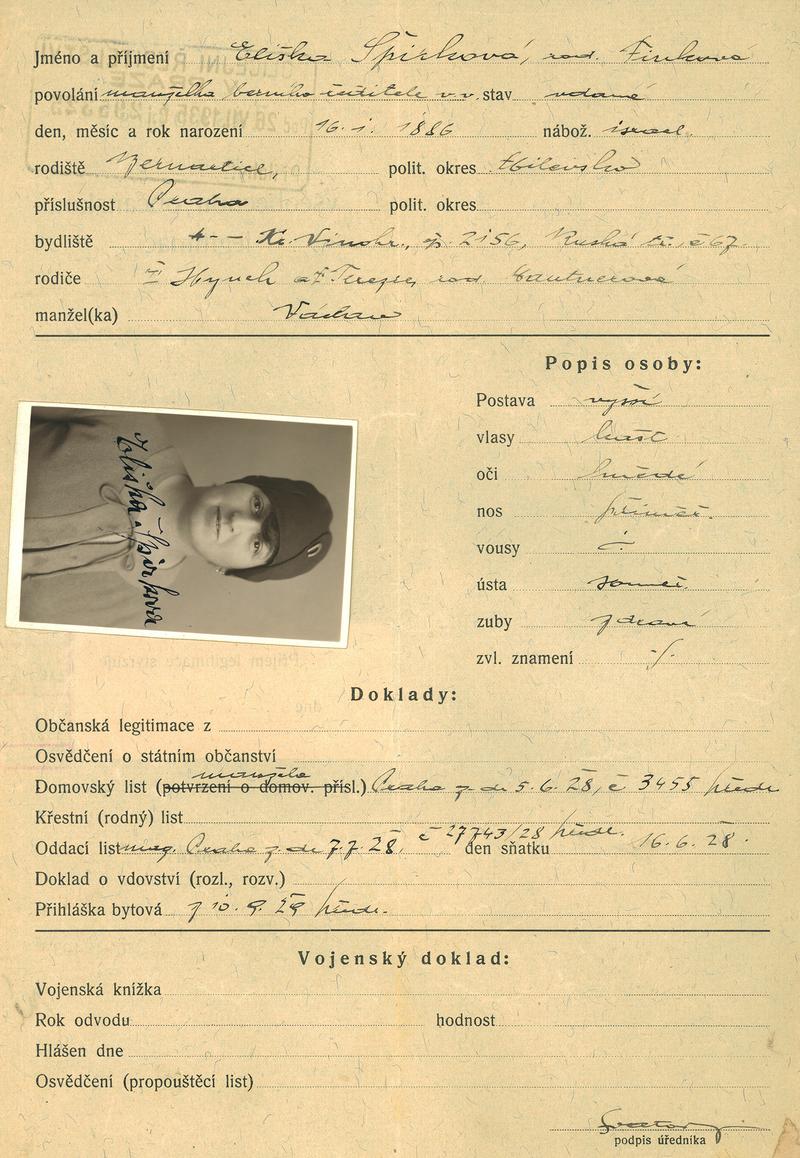 Jméno a příjmení Eliška Špirková, roz. Finková
povolání manželka berního ředitele v.v. stav vdaná
den, měsíc a rok narození 16. 1. 1886 nábož. israel.
rodiště Bernartice, polit. okres Milevsko
příslušnost Praha polit. okres
bydliště Kr. Vinohr., čp. 2156, Ruská tř. č 67.
rodiče Hynek a Terezie roz.
manžel(ka) Václav
Popis osoby:
Postava vyšší
vlasy kašt
oči hnědé
nos přiměř.
vousy
ústa souměř.
zuby zdravé
zvl. znamení ./.
Eliška Špirková
Doklady:
Občanská legitimace z
Osvědčení o státním občanství
manžela
Domovský list (potvrzení o domov. přísl.) Praha z de 5. 6. 28, č 3455 předl.
Křestní (rodný) list
č 27743/28 předl.
Oddací list mag. Praha z de 7.7. 28, den sňatku 16. 6. 28.
Doklad o vdovství (rozl., rozv.)
Přihláška bytová z 10. 9. 29 předl.
Vojenský doklad:
Vojenská knížka
Rok odvodu hodnost
Hlášen dne
Osvědčení (propouštěcí list)
podpis úředníka